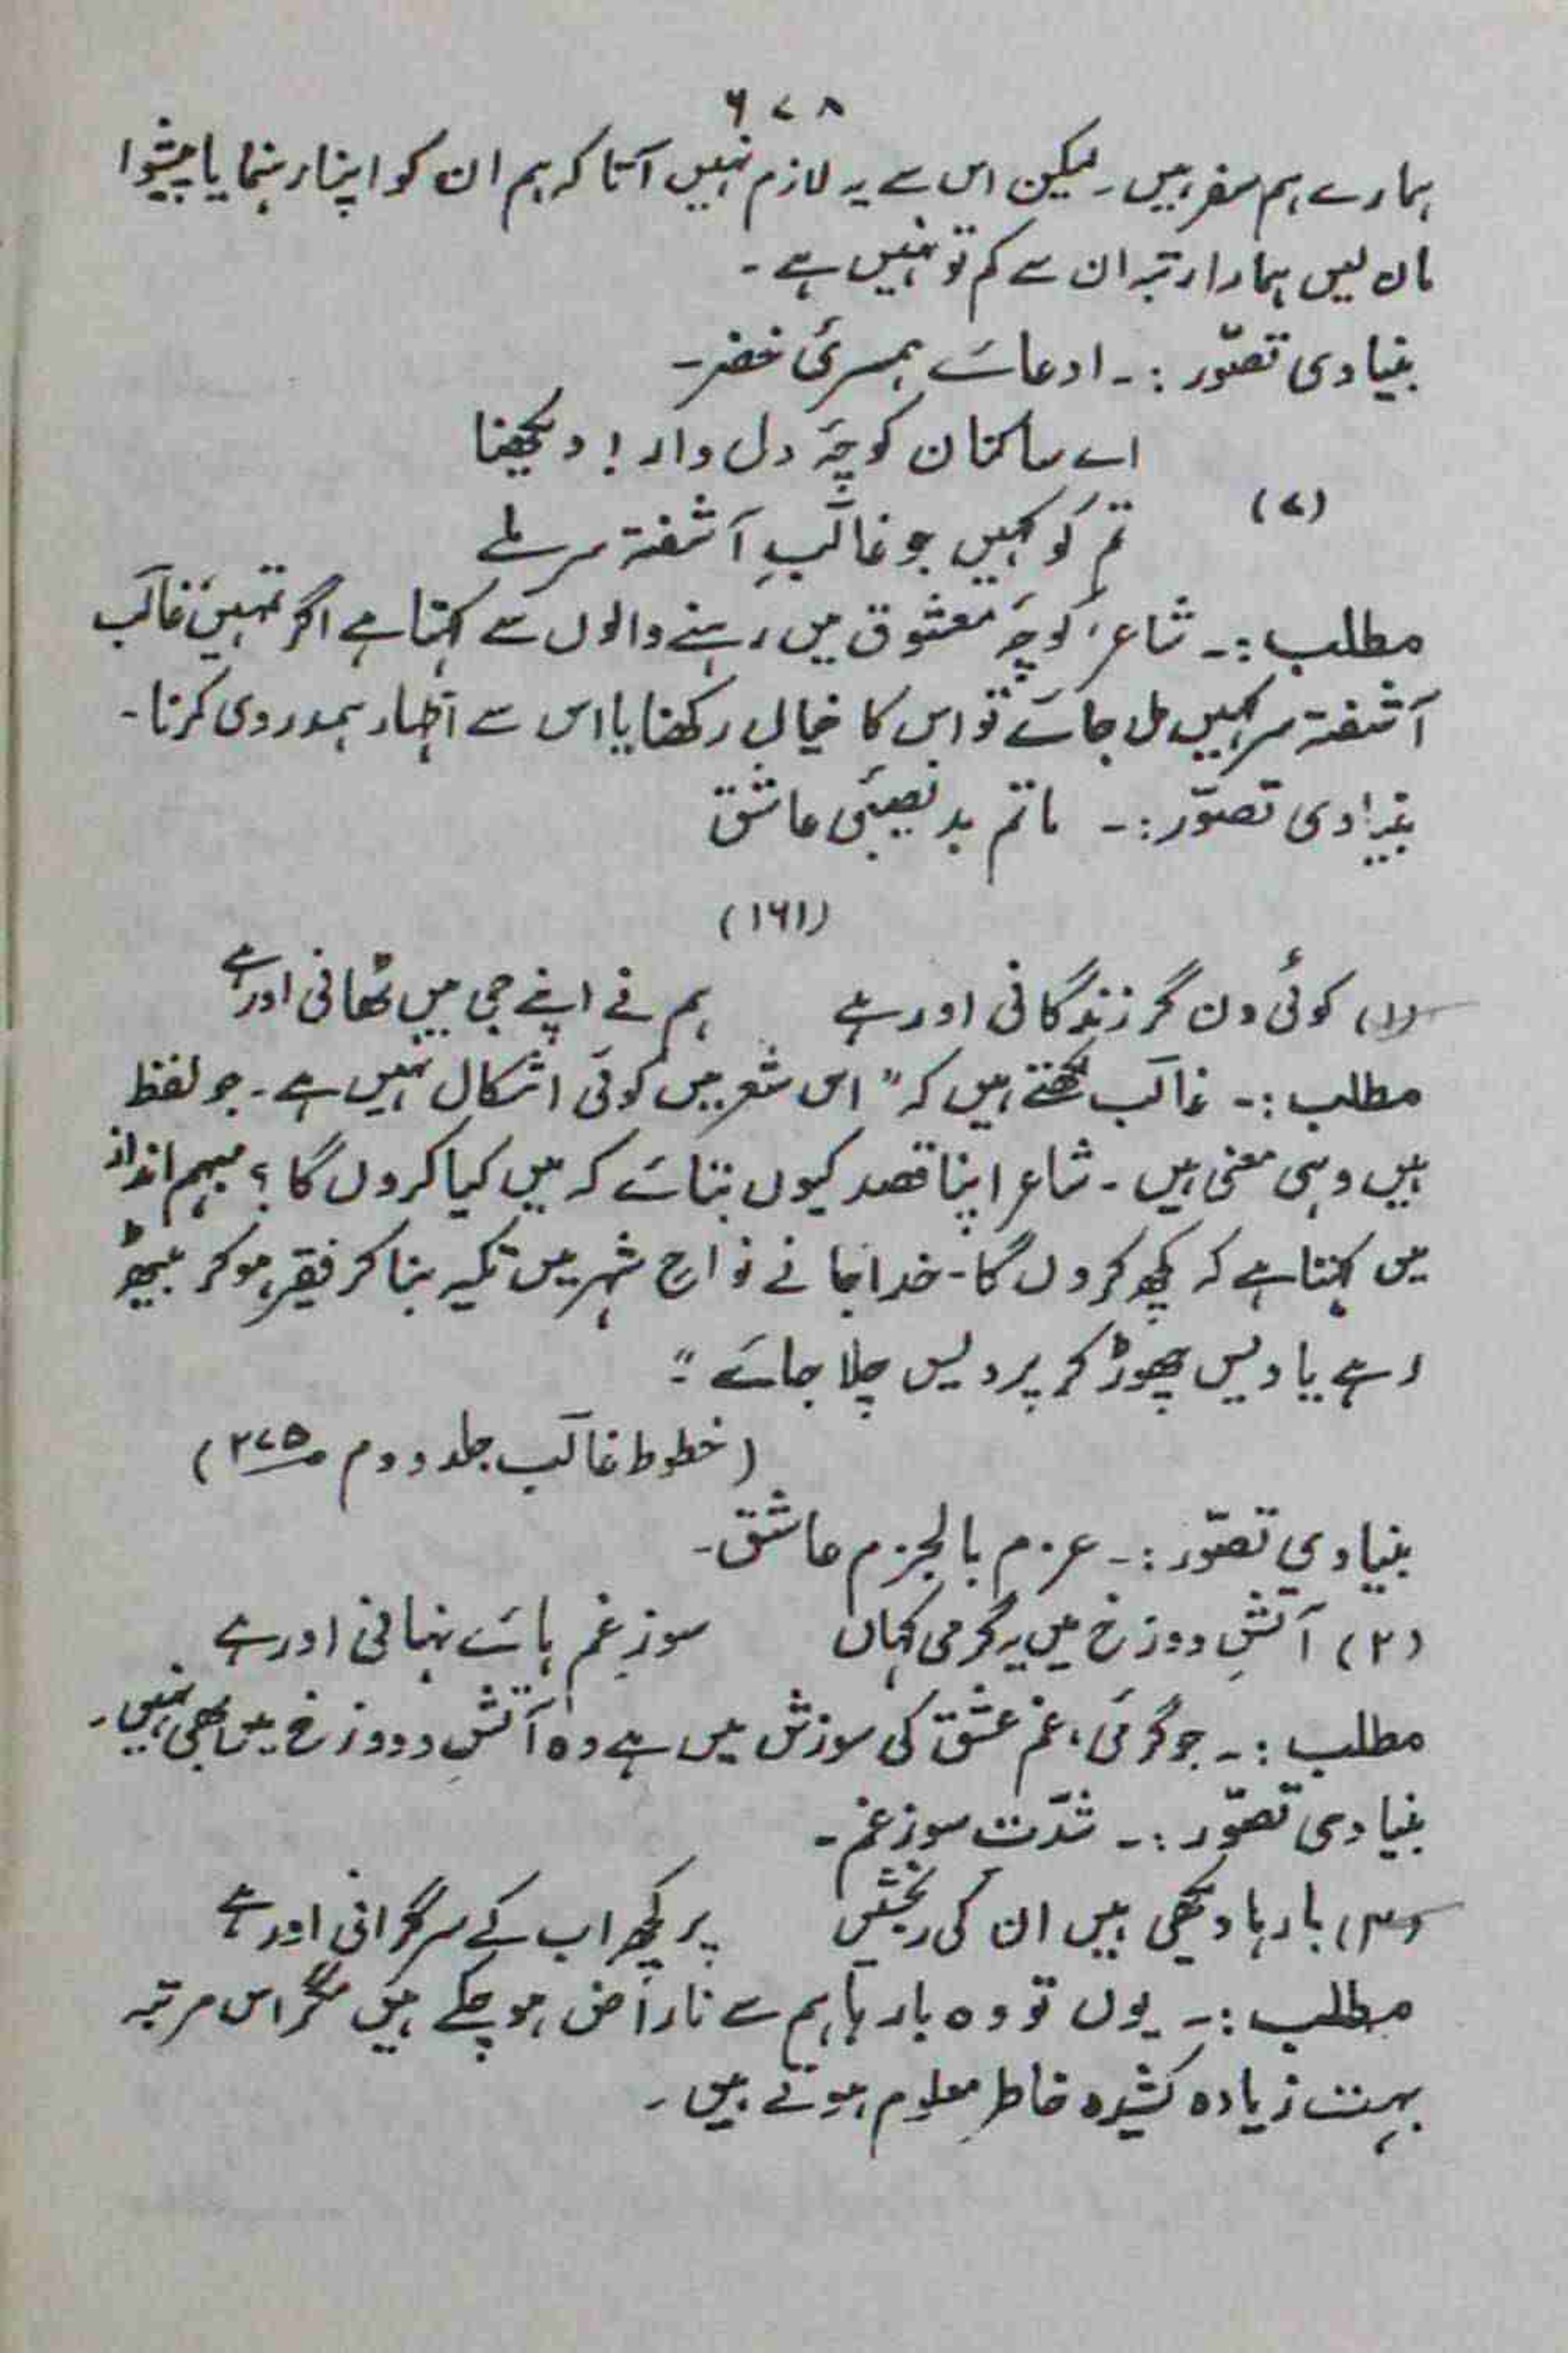 ۶۷۸
ہمارے ہم سفر ہیں۔ لیکن اس سے یہ لازم نہیں آتا کہ ہم ان کو اپنا رہنما یا پیشوا
مان لیں ہمارا رتبہ ان سے کم تو نہیں ہے۔
بنیادی تصوّر :۔ ادعائے ہمسریٔ خضر۔
اے ساکنان کوچۂ دل دار! دیکھنا
(۷)
تم کو کہیں جو غالبِ آشفتہ سر ملے
مطلب :۔ شاعر، کوچۂ معشوق میں رہنے والوں سے کہتا ہے اگر تمہیں غالب
آشفتہ سر کہیں مل جائے تو اس کا خیال رکھنا یا اس سے اظہار ہمدردی کرنا۔
بنیادی تصوّر :۔ ماتم بدنصیبیٔ عاشق
(۱۶۱)
(۱) کوئی دن گر زندگانی اور ہے ہم نے اپنے جی میں ٹھانی اور ہے
مطلب :۔ غالب لکھتے ہیں کہ " اس شعر میں کوئی اشکال نہیں ہے۔ جو لفظ
ہیں وہی معنی ہیں۔ شاعر اپنا قصد کیوں بتائے کہ میں کیا کروں گا؟ مبہم انداز
میں کہتا ہے کہ کچھ کروں گا۔ خدا جانے نواح شہر میں تکیہ بنا کر فقیر ہو کر بیٹھ
رہے یا دیس چھوڑ کر پردیس چلا جائے "
(خطوط غالب جلد دوم ص ۲۷۵)
بنیادی تصوّر :۔ عزم بالجزم عاشق۔
(۲) آتشِ دوزخ میں یہ گرمی کہاں سوزِ غم ہائے نہانی اور ہے
مطلب :۔ جو گرمی، غم عشق کی سوزش میں ہے وہ آتشِ دووزخ میں بھی نہیں۔
بنیادی تصوّر :۔ شدّت سوز غم۔
(۳) بارہا دیکھی ہیں ان کی رنجشیں پر کچھ اب کے سرگرانی اور ہے
مطلب :۔ یوں تو وہ بارہا ہم سے ناراض ہو چکے ہیں مگر اس مرتبہ
بہت زیادہ کشیدہ خاطر معلوم ہوتے ہیں۔